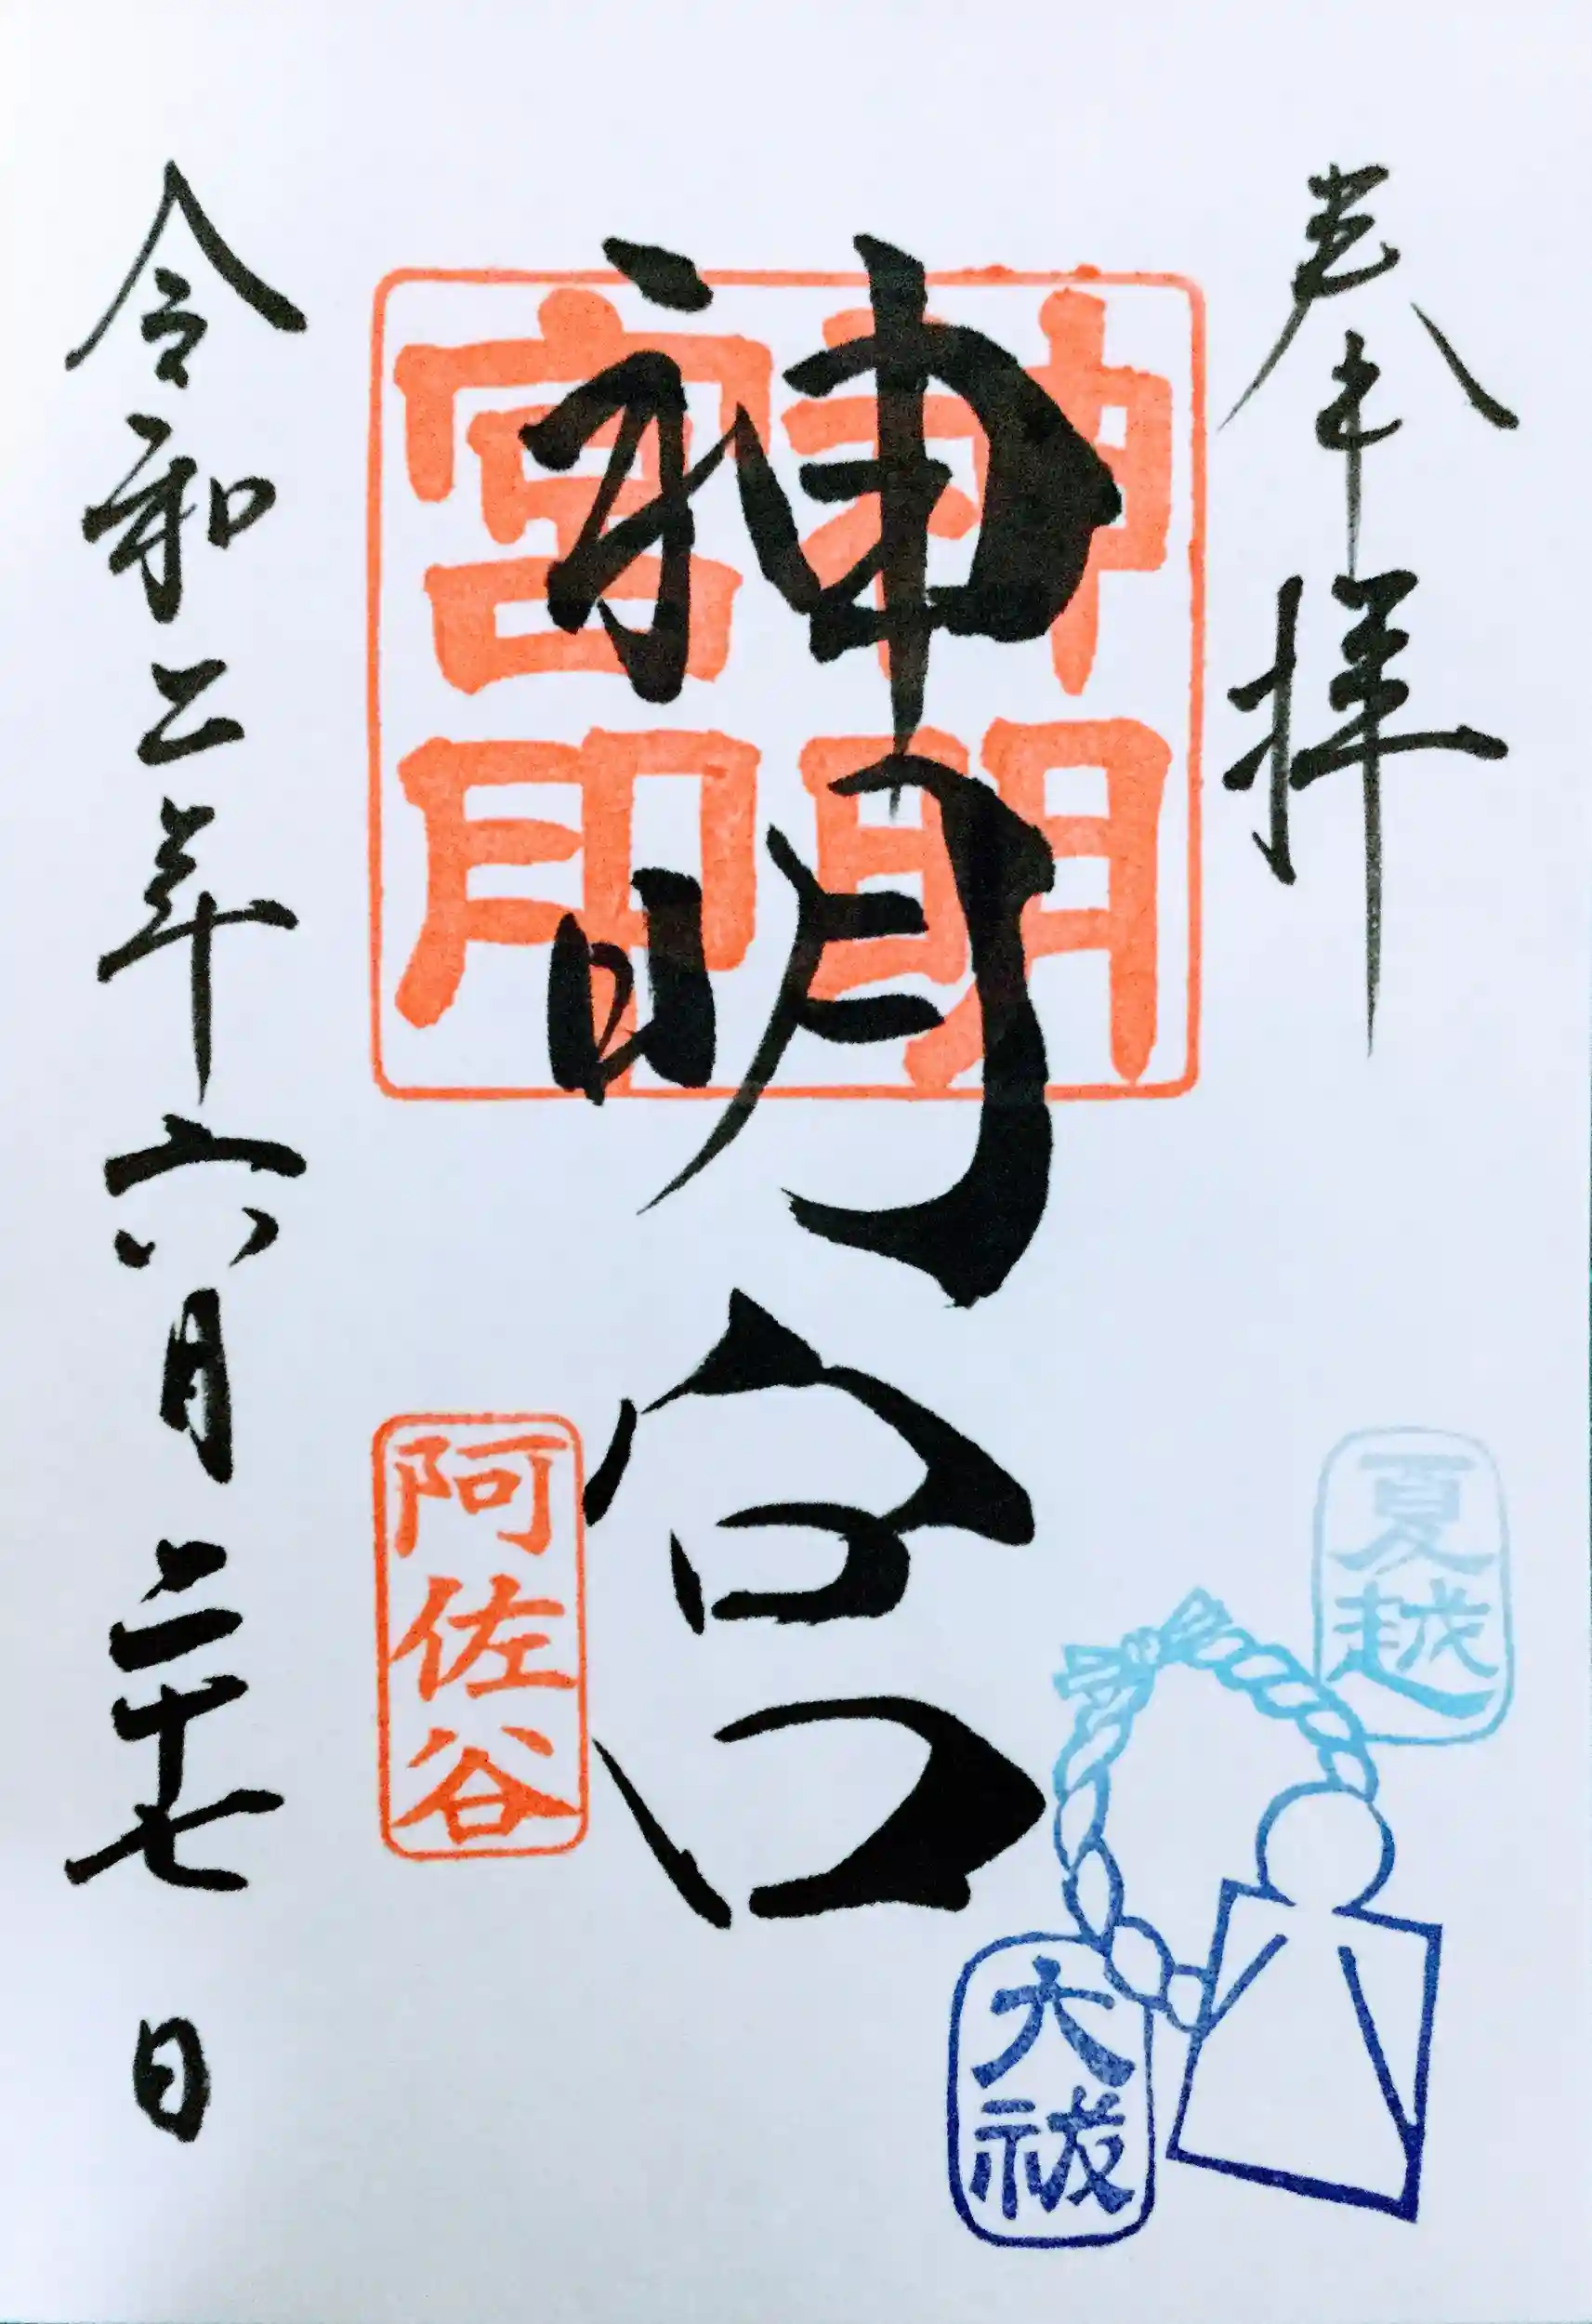 奉拝
夏越
大祓
神明宮
神明
宮印
阿佐谷
令和二年六月二十七日